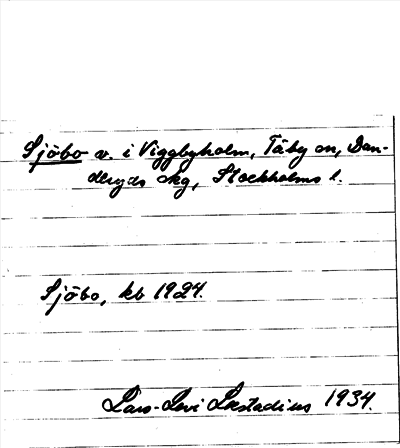 Sjöbo v. i Viggbyholm, Täby sn, Dan-
deryds skg, Stockholms l.
Sjöbo, kb 1924.
Lars-Levi Læstadius 1934.